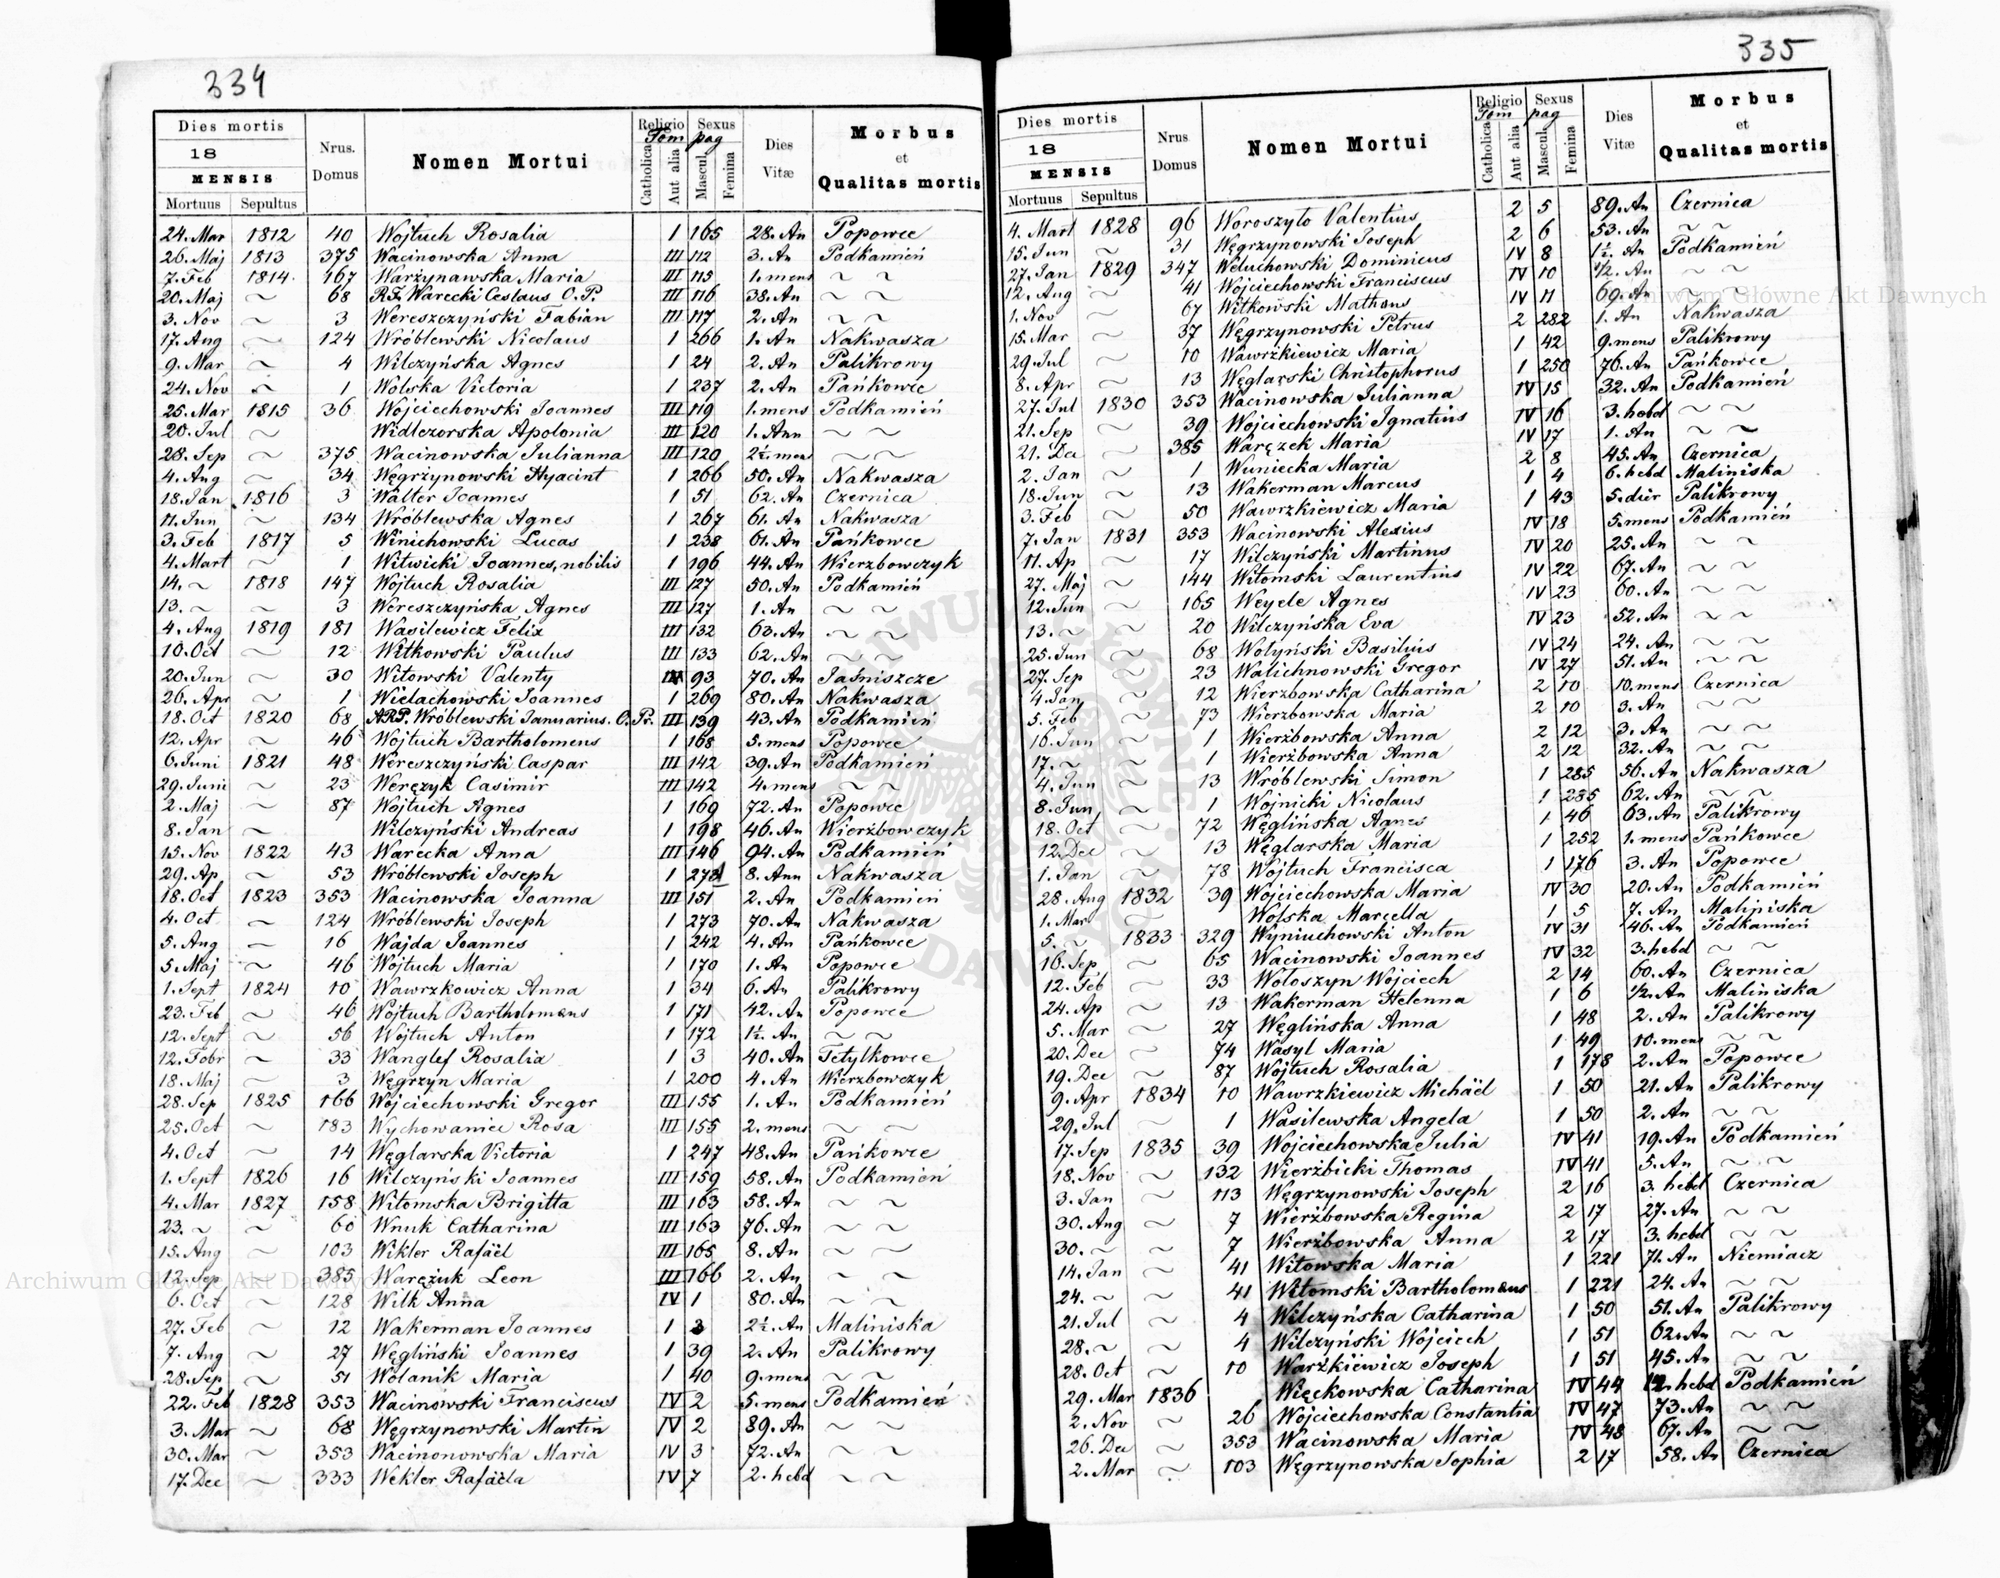 334
Dies mortis
18
MENSIS
Mortuus Sepultus
Nrus. Domus
Nomen Mortui
Religio Tom
Catholica Aut alia
Sexus pag
Mascul. Femina
Dies Vitæ
Morbus et Qualitas mortis
24. Mar 1812 40 Wojtuch Rosalia 1 165 28. An Popowce
26. Maj 1813 375 Wacinowska Anna III 112 3. An Podkamień
7. Feb 1814 167 Warzynawska Maria III 115 1. mens ~ ~
20. Maj ~ 68 R.F. Warecki Ceslaus O.P. III 116 38. An ~ ~
3. Nov ~ 3 Wereszczyński Fabian III 117 2. An ~ ~
17. Aug ~ 124 Wróblewski Nicolaus 1 266 1. An Nakwasza
9. Mar ~ 4 Wilczyńska Agnes 1 24 2. An Palikrowy
24. Nov ~ 1 Wolska Victoria 1 237 2. An Pańkowce
25. Mar 1815 36 Wojciechowski Joannes III 119 1. mens Podkamień
20. Jul ~ Widlczorska Apolonia III 120 1. Ann ~ ~
28. Sep ~ 375 Wacinowska Julianna III 120 2½. mens ~ ~
4. Aug ~ 34 Węgrzynowski Hyacint 1 266 50. An Nakwasza
18. Jan 1816 3 Walter Joannes 1 51 62. An Czernica
11. Jun ~ 134 Wróblewska Agnes 1 267 61. An Nakwasza
3. Feb 1817 5 Winichowski Lucas 1 238 61. An Pańkowce
4. Mart ~ 1 Witwicki Joannes, nobilis 1 196 44. An Wierzbowczyk
14. ~ 1818 147 Wojtuch Rosalia III 127 50. An Podkamień
13. ~ ~ 3 Wereszczyńska Agnes III 127 1. An ~ ~
4. Aug 1819 181 Wasilewicz Felix III 132 63. An ~ ~
10. Oct ~ 12 Witkowski Paulus III 133 62. An ~ ~
20. Jun ~ 30 Witowski Valenty 93 70. An Jaśniszcze
26. Apr ~ 1 Wielachowski Joannes 1 269 80. An Nakwasza
18. Oct 1820 68 A.R.P. Wróblewski Januarius. O. Pr. III 139 43. An Podkamień
12. Apr ~ 46 Wojtuch Bartholomeus 1 168 5. mens Popowce
6. Juni 1821 48 Wereszczyński Caspar III 142 39. An Podkamień
29. Juni ~ 23 Weręzyk Casimir III 142 4. mens ~ ~
2. Maj ~ 87 Wojtuch Agnes 1 169 72. An Popowce
8. Jan ~ Wilczyński Andreas 1 198 46. An Wierzbowczyk
15. Nov 1822 43 Warecka Anna III 146 94. An Podkamień
29. Ap ~ 53 Wróblewski Joseph 1 8. Ann Nakwasza
18. Oct 1823 353 Wacinowska Joanna III 151 2. An Podkamień
4. Oct ~ 124 Wróblewski Joseph 1 273 70. An Nakwasza
5. Aug ~ 16 Wajda Joannes 1 242 4. An Pańkowce
5. Maj ~ 46 Wojtuch Maria 1 170 1. An Popowce
1. Sept 1824 10 Wawrzkowicz Anna 1 34 6. An Palikrowy
23. Feb ~ 46 Wojtuch Bartholomeus 1 171 42. An Popowce
12. Sept ~ 56 Wojtuch Anton 1 172 1½. An ~ ~
12. Febr ~ 33 Wanglef Rosalia 1 3 40. An Tetylkowce
18. Maj ~ 3 Węgrzyn Maria 1 200 4. An Wierzbowczyk
28. Sep 1825 166 Wojciechowski Gregor III 155 1. An Podkamień
25. Oct ~ 183 Wychowaniec Rosa III 155 2. mens ~ ~
4. Oct ~ 14 Węglarska Victoria 1 247 48. An Pańkowce
1. Sept 1826 16 Wilczyński Joannes III 159 58. An Podkamień
4. Mar 1827 158 Witomska Brigitta III 163 58. An ~ ~
23. ~ ~ 60 Wnuk Catharina III 163 76. An ~ ~
15. Aug ~ 103 Wikler Rafäel III 165 8. An ~ ~
12. Sep ~ 385 Waręzuk Leon III 166 2. An ~ ~
6. Oct ~ 128 Wilk Anna IV 1 80. An ~ ~
27. Feb ~ 12 Wakerman Joannes 1 3 2½. An Maliniska
7. Aug ~ 27 Węgliński Joannes 1 39 2. An Palikrowy
28. Sep ~ 51 Wolanik Maria 1 40 9. mens ~ ~
22. Feb 1828 353 Wacinowski Franciscus IV 2 5. mens Podkamień
3. Mar ~ 68 Węgrzynowski Martin IV 2 89. An ~ ~
30. Mar ~ 353 Wacinonowska Maria IV 3 72. An ~ ~
17. Dec ~ 333 Wekler Rafäela IV 7 2. hebd ~ ~
335
Dies mortis
18
MENSIS
Mortuus Sepultus
Nrus Domus
Nomen Mortui
Religio Tom
Catholica Aut alia
Sexus pag
Mascul. Femina
Dies Vitæ
Morbus et Qualitas mortis
4. Mart 1828 96 Woroszyło Valentius 2 5 89. An Czernica
15. Jun ~ 31 Węgrzynowski Joseph 2 6 53. An ~ ~
27. Jan 1829 347 Weluchowski Dominicus IV 8 1½. An Podkamień
12. Aug ~ 41 Wojciechowski Franciscus IV 10 ½. An ~ ~
1. Nov ~ 67 Witkowski Matheus IV 11 69. An ~ ~
15. Mar ~ 37 Węgrzynowski Petrus 2 282 1. An Nakwasza
29. Jul ~ 10 Wawrzkiewicz Maria 1 42 9. mens Palikrowy
8. Apr ~ 13 Węglarski Christophorus 1 250 76. An Pańkowce
27. Jul 1830 353 Wacinowska Julianna IV 15 32. An Podkamień
21. Sep ~ 39 Wojciechowski Ignatius IV 16 3. hebd ~ ~
21. Dec ~ 385 Waręzek Maria IV 17 1. An ~ ~
2. Jan ~ 1 Wuniecka Maria 2 8 45. An Czernica
18. Jun ~ 13 Wakerman Marcus 1 4 6. hebd Maliniska
3. Feb ~ 50 Wawrzkiewicz Maria 1 43 5. dier Palikrowy
7. Jan 1831 353 Wacinowski Alexius IV 18 5. mens Podkamień
11. Ap ~ 17 Wilczyński Martinus IV 20 25. An ~ ~
27. Maj ~ 144 Witomski Laurentius IV 22 67. An ~ ~
12. Jun ~ 165 Weyele Agnes IV 23 60. An ~ ~
13. ~ ~ 20 Wilczyńska Eva IV 23 52. An ~ ~
25. Jun ~ 68 Wołyński Basilius IV 24 24. An ~ ~
27. Sep ~ 23 Walichnowski Gregor IV 27 51. An ~ ~
4. Jan ~ 12 Wierzbowska Catharina 2 10 10. mens Czernica
5. Feb ~ 73 Wierzbowska Maria 2 10 3. An ~ ~
16. Jun ~ 1 Wierzbowska Anna 2 12 3. An ~ ~
17. ~ ~ 1 Wierzbowska Anna 2 12 32. An ~ ~
4. Jun ~ 13 Wróblewski Simon 1 285 56. An Nakwasza
8. Jun ~ 1 Wojnicki Nicolaus 1 285 62. An ~ ~
18. Oct ~ 72 Węglińska Agnes 1 46 63. An Palikrowy
12. Dec ~ 13 Węglarska Maria 1 252 1. mens Pańkowce
1. Jan ~ 78 Wojtuch Francisca 1 176 3. An Popowce
28. Aug 1832 39 Wojciechowska Maria IV 30 20. An Podkamień
1. Mar ~ Wolska Marcella 1 5 7. An Maliniska
5. ~ 1833 329 Wyniuchowski Anton IV 31 46. An Podkamień
16. Sep ~ 65 Wacinowski Joannes IV 32 3. hebd ~ ~
12. Feb ~ 33 Wołoszyn Wojciech 2 14 60. An Czernica
24. Ap ~ 13 Wakerman Helenna 1 6 ½. An Maliniska
5. Mar ~ 27 Węglińska Anna 1 48 2. An Palikrowy
20. Dec ~ 74 Wasyl Maria 1 49 10. mens ~ ~
19. Dec ~ 87 Wojtuch Rosalia 1 178 2. An Popowce
9. Apr 1834 10 Wawrzkiewicz Michäel 1 50 21. An Palikrowy
29. Jul ~ 1 Wasilewska Angela 1 50 2. An ~ ~
17. Sep 1835 39 Wojciechowska Julia IV 41 19. An Podkamień
18. Nov ~ 132 Wierzbicki Thomas IV 41 5. An ~ ~
3. Jan ~ 113 Węgrzynowski Joseph 2 16 3. hebd Czernica
30. Aug ~ 7 Wierzbowska Regina 2 17 27. An ~ ~
30. ~ ~ 7 Wierzbowska Anna 2 17 3. hebd ~ ~
14. Jan ~ 41 Witowska Maria 1 221 71. An Niemiacz
24. ~ ~ 41 Witomski Bartholomeus 1 221 24. An ~ ~
21. Jul ~ 4 Wilczyńska Catharina 1 50 51. An Palikrowy
28. ~ ~ 4 Wilczyński Wojciech 1 51 62. An ~ ~
28. Oct ~ 10 Warzkiewicz Joseph 1 51 45. An ~ ~
29. Mar 1836 Więckowska Catharina IV 44 12. hebd Podkamień
2. Nov ~ 26 Wojciechowska Constantia IV 47 73. An ~ ~
26. Dec ~ 353 Wacinowska Maria IV 48 67. An ~ ~
2. Mar ~ 103 Węgrzynowska Sophia 2 17 58. An Czernica
Archiwum Główne Akt Dawnych
Archiwum Główne Akt Dawnych